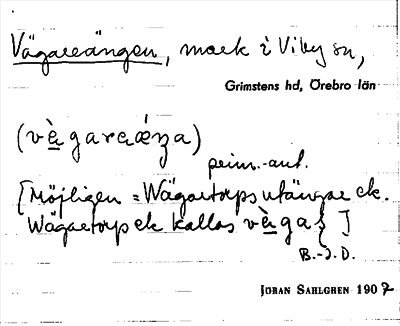 Vägareängen, mark i Viby sn,
Grimstens hd, Örebro län
(vὲgaraǽŋa)
prim.-ant.
[Möjligen = Wägartorps utängar ek.
Wägartorp ek kallas vὲgaʃ ]
B.-J. D.
JÖRAN SAHLGREN 1907